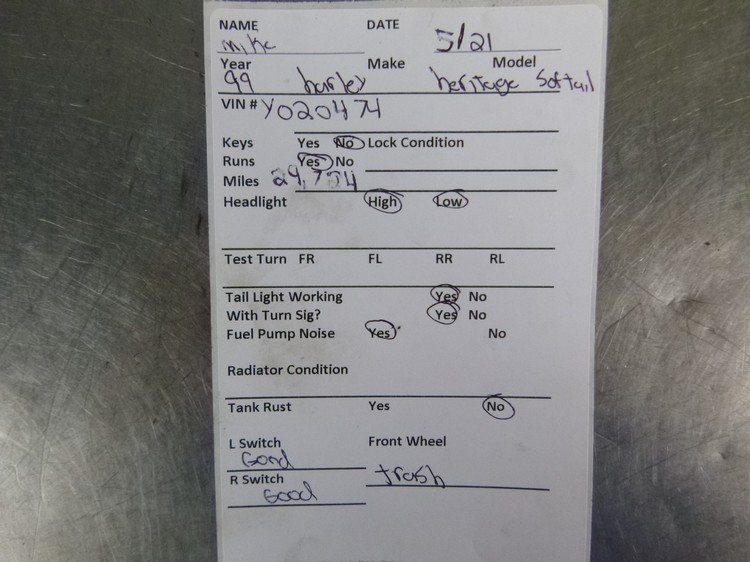 NAME DATE
Mike 5/21
Year Make Model
99 harley heritage Softail
VIN # Y020474
Keys Yes No Lock Condition
Runs Yes No
Miles
Headlight High Low
Test Turn FR FL RR RL
Tail Light Working Yes No
With Turn Sig? Yes No
Fuel Pump Noise Yes No
Radiator Condition
Tank Rust Yes No
L Switch Front Wheel
Good
R Switch trash
Good